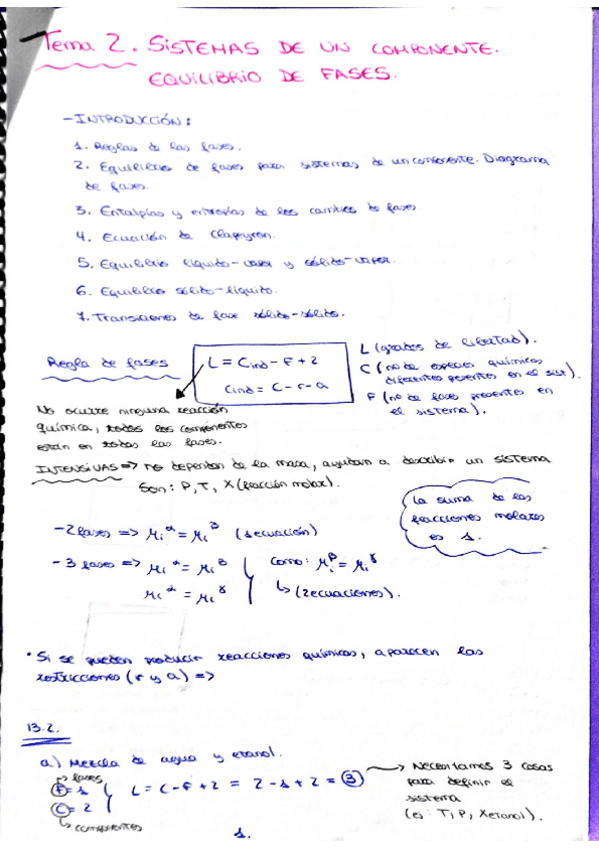 Tema 2. SISTEMAS DE UN COMPONENTE.
EQUILIBRIO DE FASES.
- INTRODUCCIÓN:
1. Reglas de las fases.
2. Equilibrio de fases para sistemas de un componente. Diagrama
de fases.
3. Entalpías y entropías de los cambios de fases
4. Ecuación de Clapeyron.
5. Equilibrio líquido-vapor y sólido-vapor.
6. Equilibrio sólido-líquido.
7. Transiciones de fase sólido-sólido.
Regla de fases
L = Cind - F + 2
Cind = C - r - a
L (grados de libertad).
C (nº de especies químicas
diferentes presentes en el sist).
F (nº de fases presentes en
el sistema).
No ocurre ninguna reacción
química, todos los componentes
están en todas las fases.
INTENSIVAS => no dependen de la masa, ayudan a describir un sistema
Son: P, T, X (fracción molar).
La suma de las
fracciones molares
es 1.
- 2 fases => μiα = μiβ (1 ecuación)
- 3 fases => μiα = μiβ } como: μiβ = μiγ
μiα = μiγ ↳ (2 ecuaciones).
• Si se pueden producir reacciones químicas, aparecen las
restricciones (r y a) =>
13.2.
a) Mezcla de agua y etanol.
↳ fases
F = 1
C = 2
L = C - F + 2 = 2 - 1 + 2 = 3
↳ componentes
→ Necesitamos 3 cosas
para definir el
sistema
(ej: T, P, Xetanol).
1.